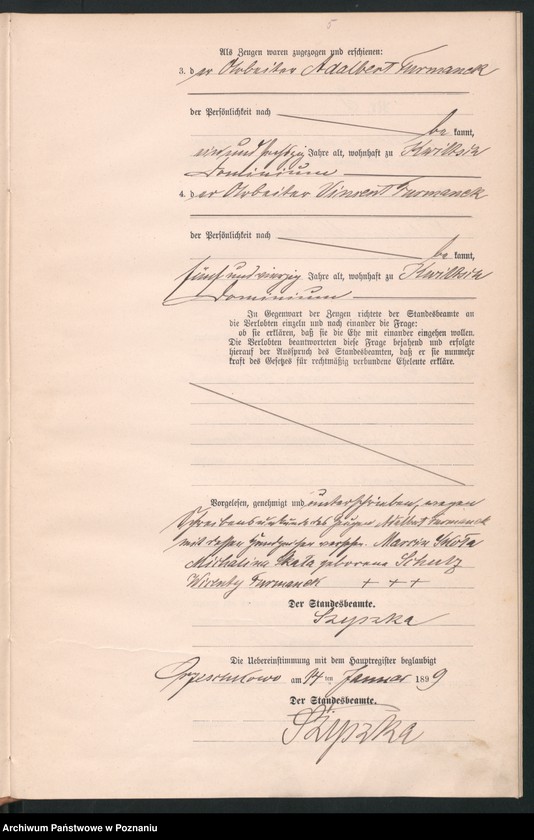 5
Als Zeugen waren zugezogen und erschienen:
3. der Arbeiter Adalbert Furmanek
der Persönlichkeit nach
bekannt,
ein und sechzig Jahre alt, wohnhaft zu
Dominium
4. der Arbeiter Vincent Furmanek
der Persönlichkeit nach
bekannt,
fünf und vierzig Jahre alt, wohnhaft zu
Dominium
In Gegenwart der Zeugen richtete der Standesbeamte an
die Verlobten einzeln und nach einander die Frage:
ob sie erklären, daß sie die Ehe mit einander eingehen wollen.
Die Verlobten beantworteten diese Frage bejahend und erfolgte
hierauf der Ausspruch des Standesbeamten, daß er sie nunmehr
kraft des Gesetzes für rechtmäßig verbundene Eheleute erkläre.
Vorgelesen, genehmigt und unterschrieben, wegen
Schreibensunkunde des Zeugen Adalbert Furmanek
mit dessen Handzeichen versehen. Marcin Skała
Michalina Skała geborene Schulz
Wicenty Furmanek + + +
Der Standesbeamte.
Szyszka
Die Uebereinstimmung mit dem Hauptregister beglaubigt
am 14 ten Januar 1899
Der Standesbeamte.
Szyszka
Archiwum Państwowe w Poznaniu